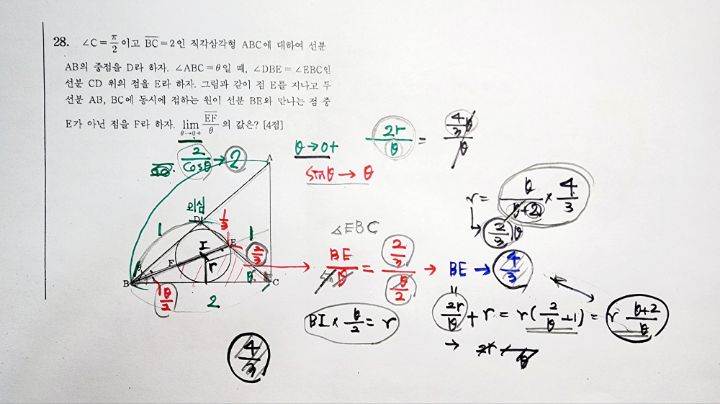 28. ∠C = π/2 이고 BC = 2인 직각삼각형 ABC에 대하여 선분
AB의 중점을 D라 하자. ∠ABC = θ일 때, ∠DBE = ∠EBC인
선분 CD 위의 점을 E라 하자. 그림과 같이 점 E를 지나고 두
선분 AB, BC에 동시에 접하는 원이 선분 BE와 만나는 점 중
E가 아닌 점을 F라 하자. lim θ→0+ EF/θ 의 값은? [4점]
2/cosθ → 2
θ → 0+
sinθ → θ
2r/θ = 4/3θ/θ
r = θ/θ+2 × 4/3
→ 2/3 θ
A
외심
D
1
1/3
1
I
E
2/3
F
r
B
θ/2
θ
C
2
△EBC
BE/θ = 2/3/θ/2 → BE → 4/3
BI × θ/2 = r
2r/θ + r = r(2/θ + 1) = r θ+2/θ
4/3